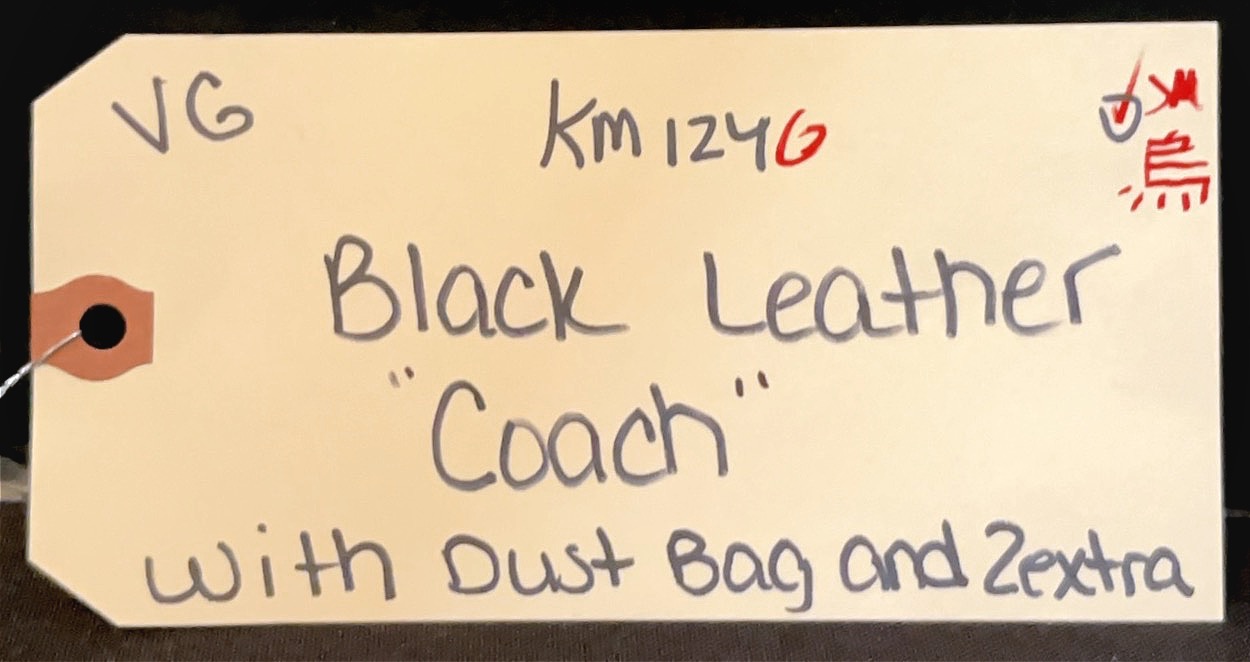 VG KM124G
Black Leather
"Coach"
with Dust Bag and 2extra